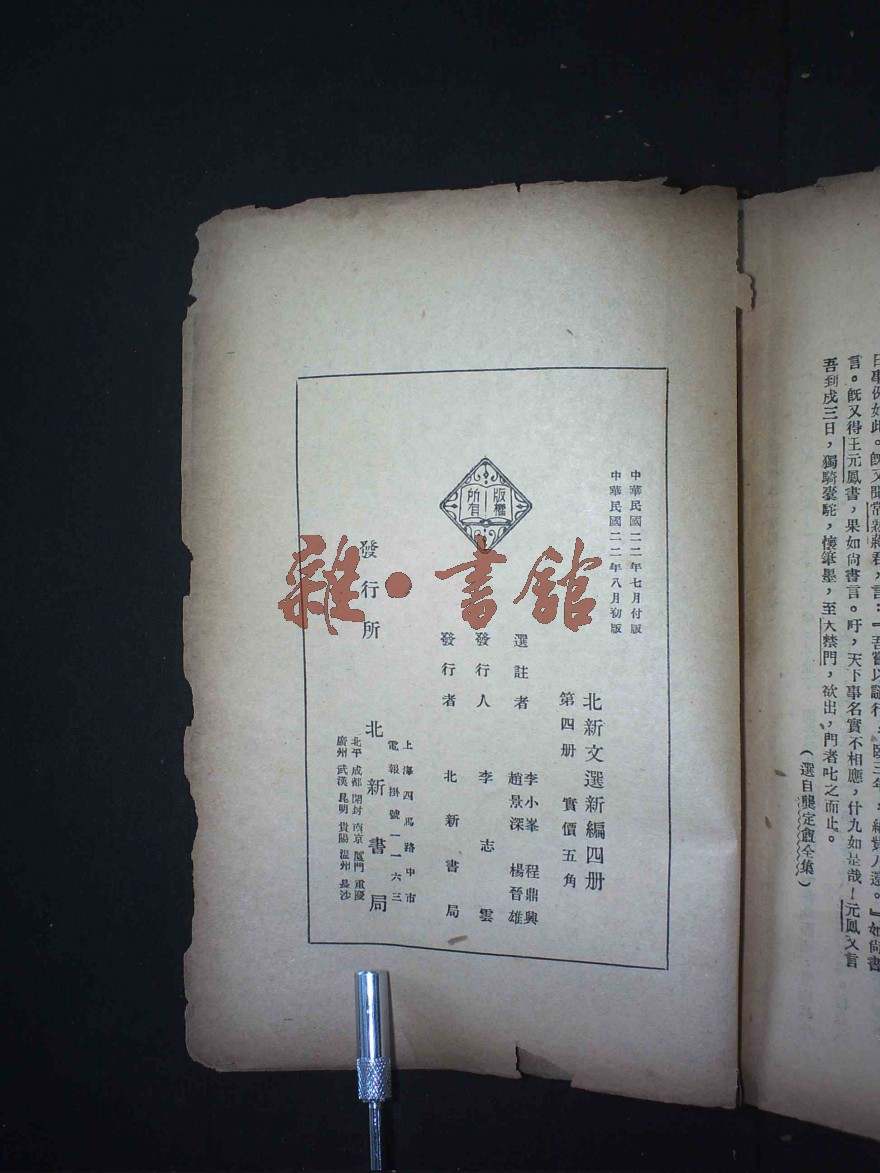 日事例如此。既又聞常熟蔣君，言：『吾嘗以謎行，
言。既又得王元鳳書，果如尙書言。吁，天下事名實不相應，什九如是哉！元鳳又言
吾到戍三日，獨騎橐駝，懷筆墨，至大禁門，欲出，門者叱之而止。
（選自龔定盦全集）
中華民國二二年七月付版
中華民國二二年八月初版
北新文選新編四册
第四册 實價五角
選註者 李小峯 程鼎興
趙景深 楊晉雄
發行人 李志雲
發行者 北新書局
版權
所有
上海四馬路中市
電報掛號一一六三
發行所 北新書局
北平 成都 開封 南京 厦門 重慶
廣州 武漢 昆明 貴陽 温州 長沙
雜·書館